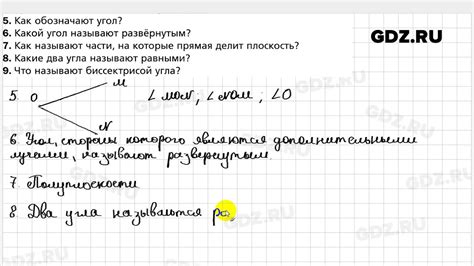 5. Как обозначают угол?
6. Какой угол называют развёрнутым?
7. Как называют части, на которые прямая делит плоскость?
8. Какие два угла называют равными?
9. Что называют биссектрисой угла?
GDZ.RU
5. O M N ∠MON, ∠NOM, ∠O
6. Угол, стороны которого являются дополнительными
лучами, называют развернутым.
7. Полуплоскости
8. Два угла называются ра